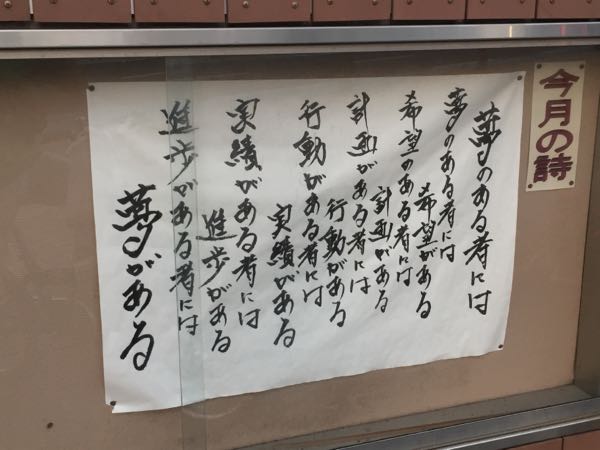 今月の詩
夢のある者には
夢のある者には
希望がある
希望のある者には
計画がある
計画がある者には
行動がある
行動がある者には
実績がある
実績がある者には
進歩がある
進歩がある者には
夢がある